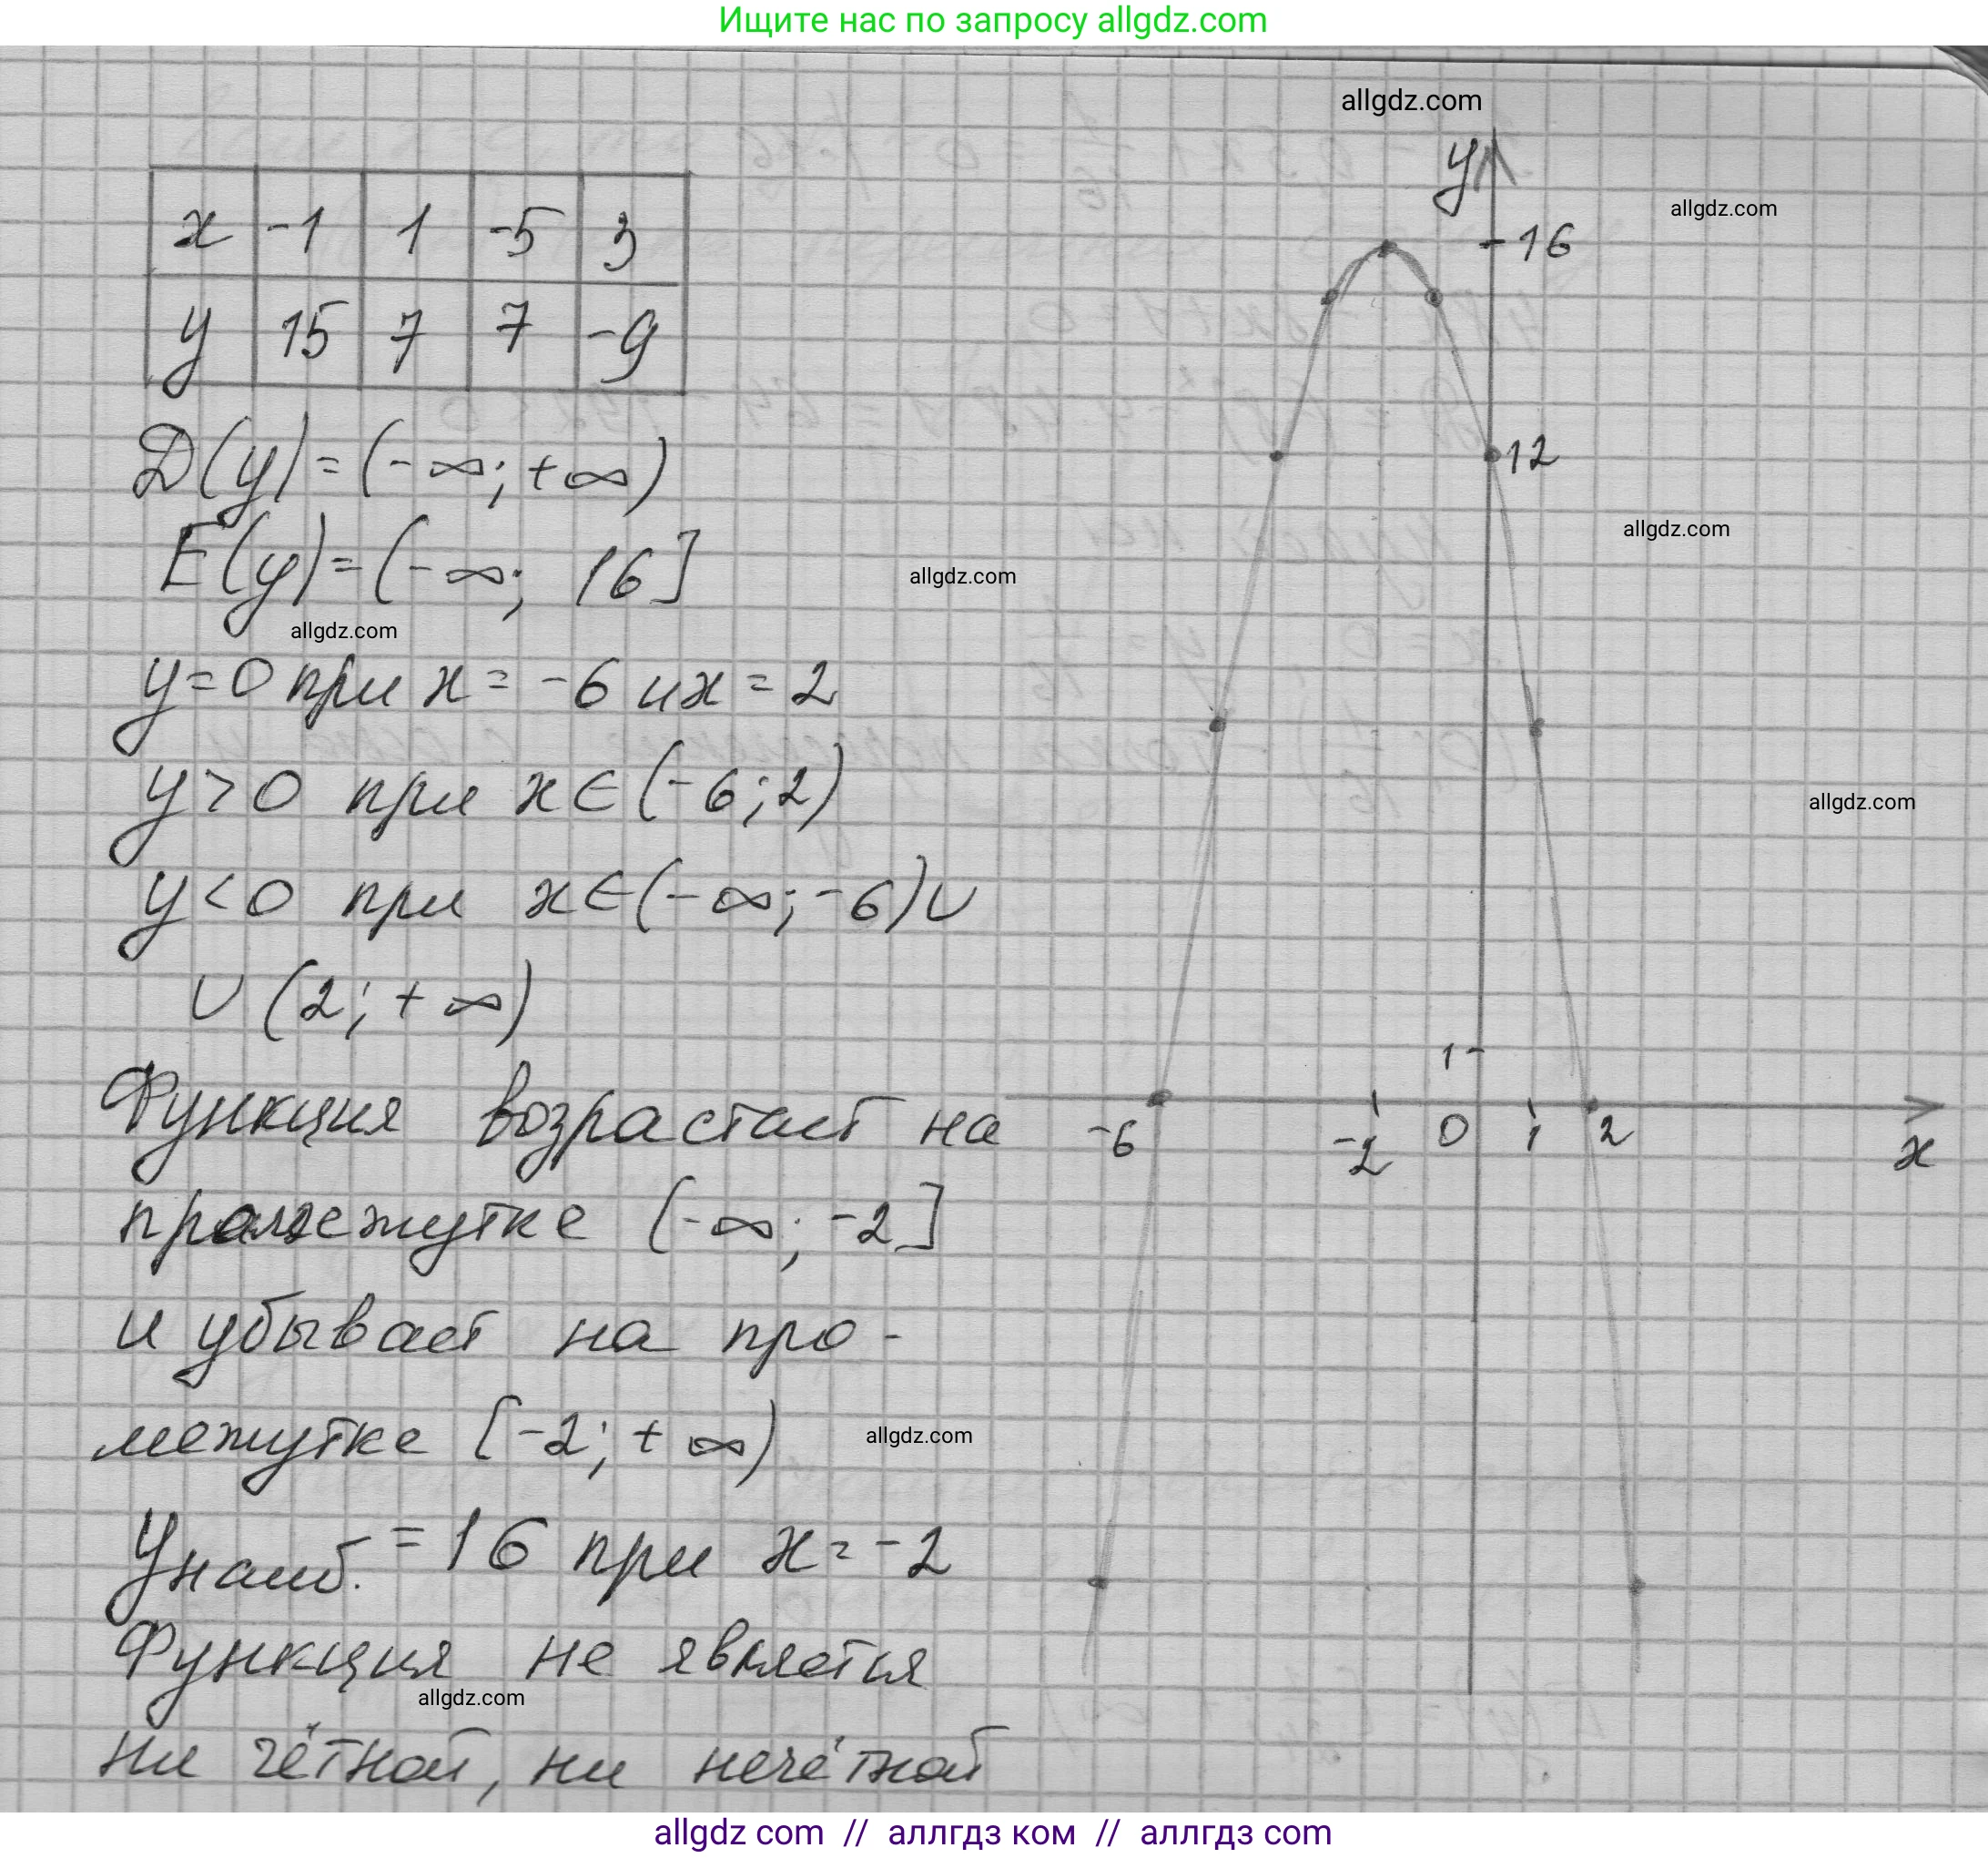 Ищите нас по запросу allgdz.com
allgdz.com
y
allgdz.com
16
x -1 1 -5 3
y 15 7 7 -9
12
D(y)=(-∞;+∞)
allgdz.com
E(y)=(-∞; 16]
allgdz.com
allgdz.com
y=0 при x=-6 и x=2
y>0 при x∈(-6;2)
allgdz.com
y<0 при x∈(-∞;-6)∪
∪(2;+∞)
1
-6 -2 0 1 2 x
Функция возрастает на
промежутке (-∞;-2]
и убывает на про-
межутке [-2;+∞)
allgdz.com
yнаиб.=16 при x=-2
Функция не является
allgdz.com
ни чётной, ни нечётной
allgdz com // аллгдз ком // аллгдз com